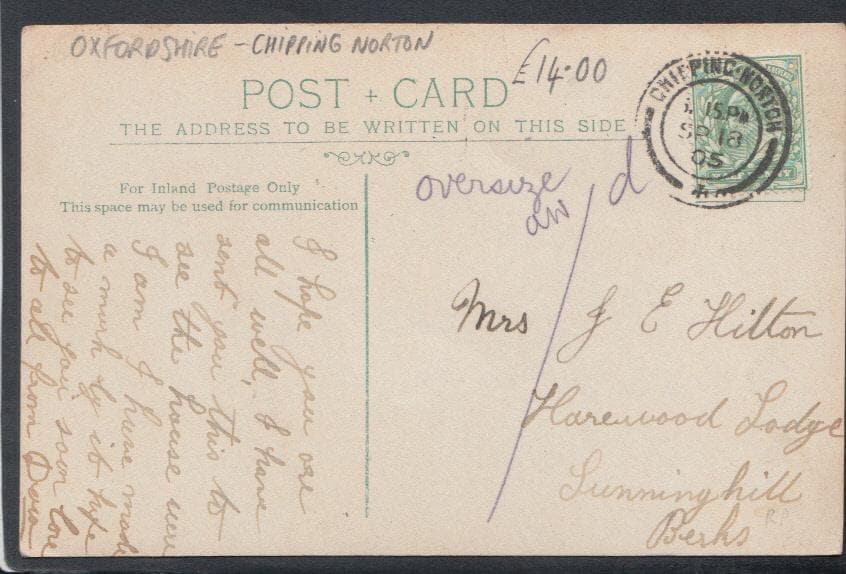 OXFORDSHIRE - CHIPPING NORTON
£14.00
POST + CARD
THE ADDRESS TO BE WRITTEN ON THIS SIDE
CHIPPING-NORTON
15.PM
SP 18
05
For Inland Postage Only
This space may be used for communication
oversize / d
aw
Mrs J E Hilton
Harewood Lodge
Sunninghill
Berks
RP
I hope you are
all well, I have
sent you this to
see the house were
I am I have made
a mark by it hope
to see you soon love
to all from